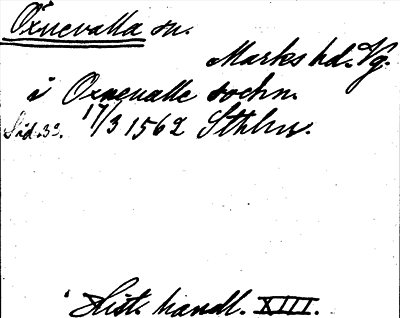 Öxnevalla sn.
Marks hd. Vg.
i Oxneualle sochn.
Sid. 33. 17/3 1562 Sthlm.
Hist. handl. XIII.